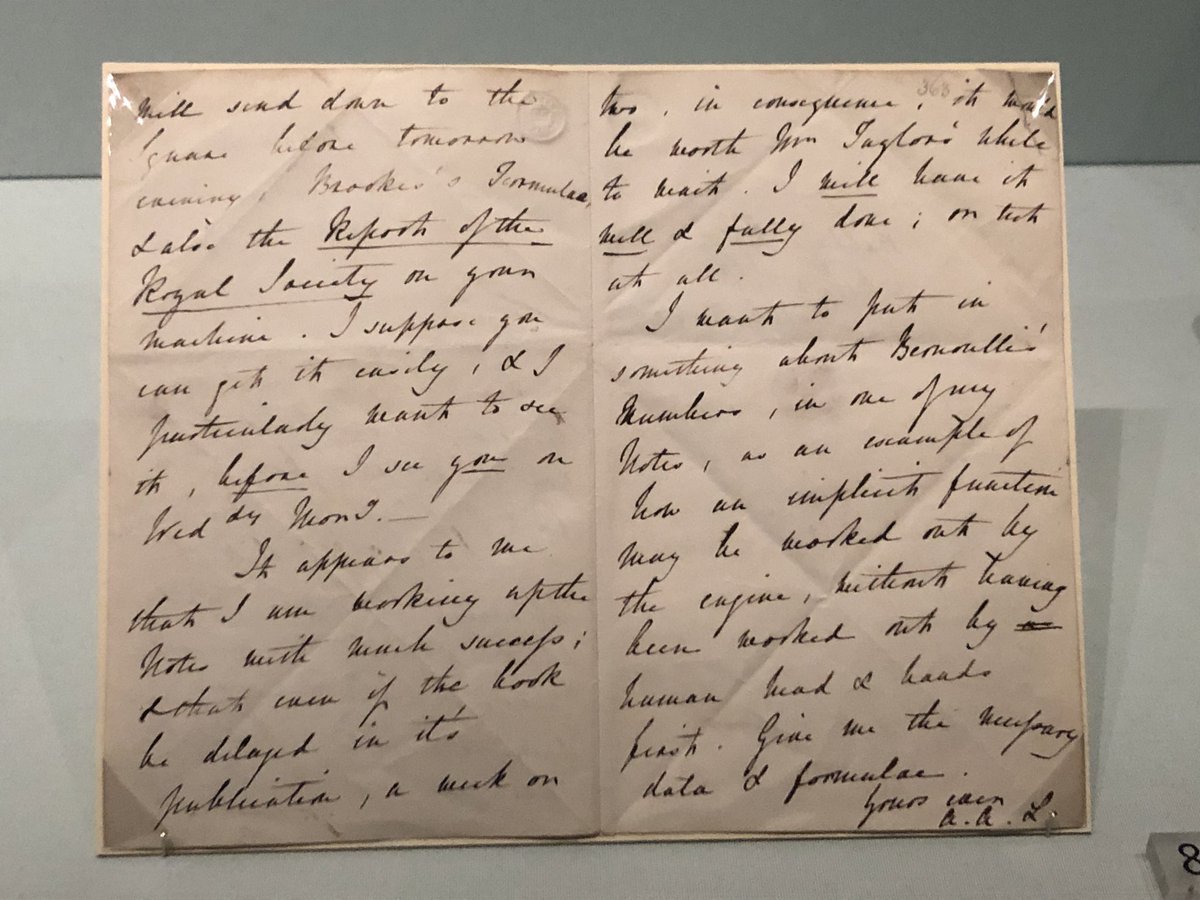 will send down to the
Square before tomorrow
evening, Brooke's Formulae,
& also the Report of the
Royal Society on your
machine. I suppose you
can get it easily, & I
particularly want to see
it, before I see you on
Wed dy Morng.—
It appears to me
that I am working up the
Notes with much success;
& that even if the book
be delayed in it's
publication, a week or
two, in consequence, it would
be worth Mr Taylor's while
to wait. I will have it
well & fully done; or not
at all.
I want to put in
something about Bernouilli's
Numbers, in one of my
Notes, as an example of
how an implicit function
may be worked out by
the engine, without having
been worked out by
human head & hands
first. Give me the necessary
data & formulae.
Yours ever
A. A. L.
363
8